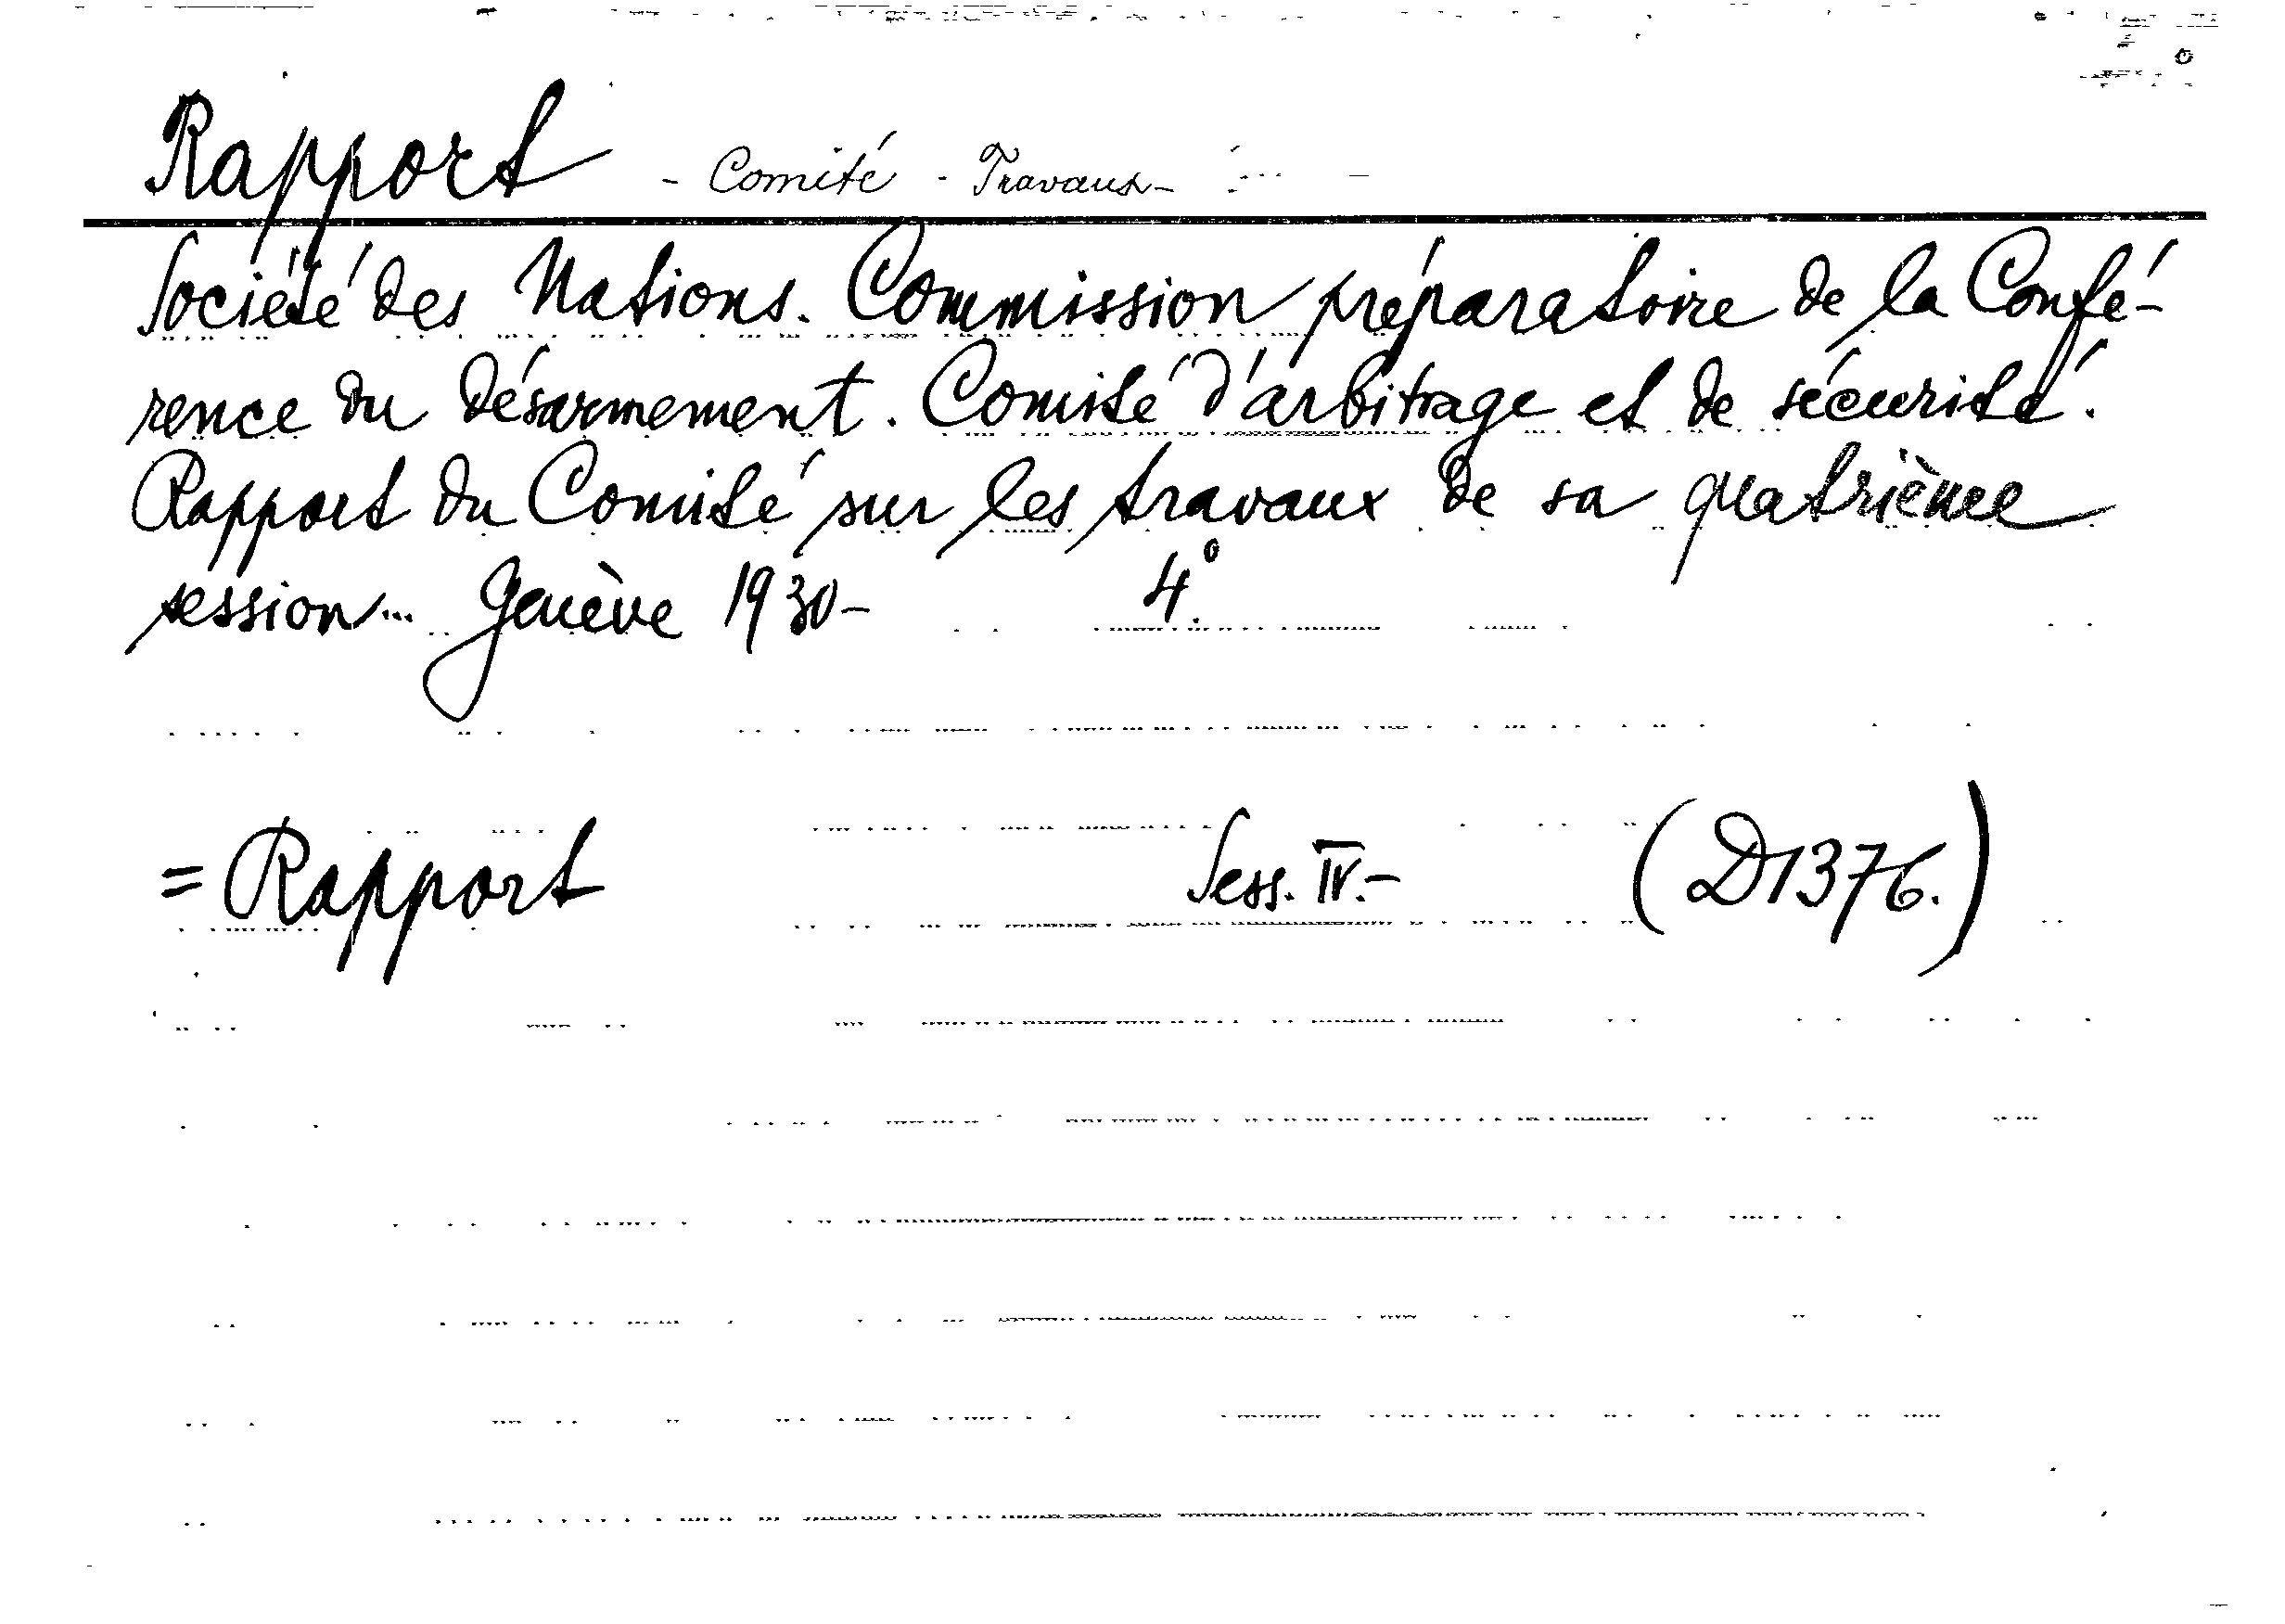 Rapport - Comité - Travaux -
Société des Nations. Commission préparatoire de la Confé-
rence du Désarmement. Comité d'arbitrage et de sécurité.
Rapport du Comité sur les travaux de sa quatrième
session... Genève 1930- 4°.
= Rapport Sess. IV.- (D1376.)